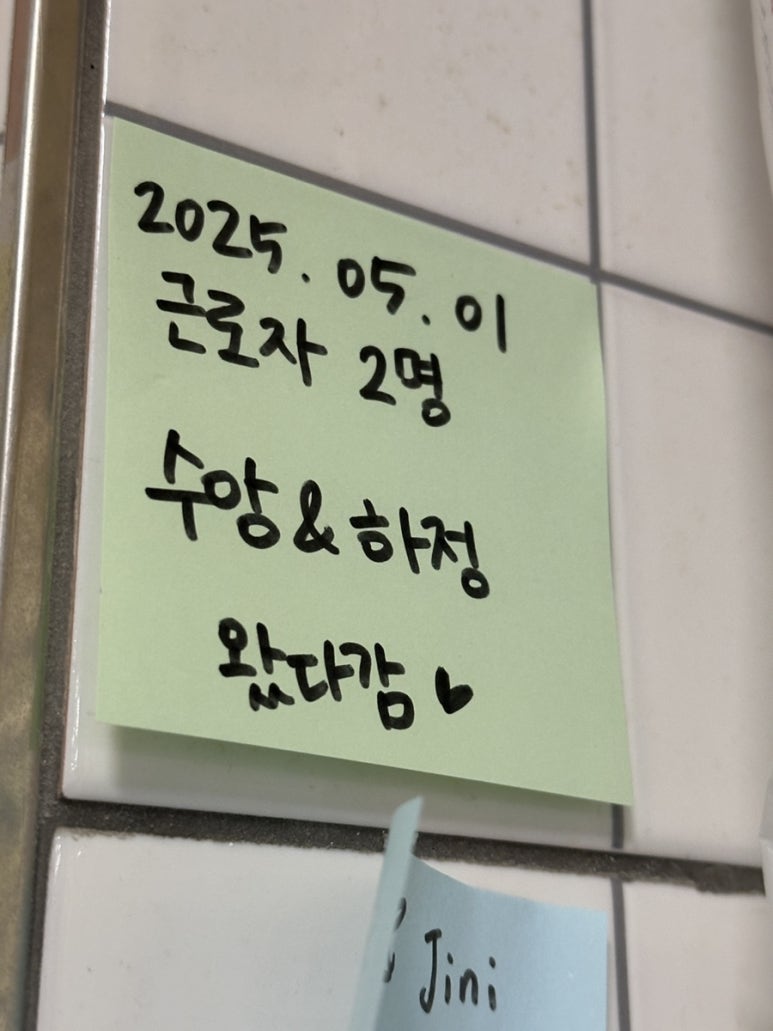 2025.05.01
근로자 2명
수앙 & 하정
왔다감 ♥
Jini